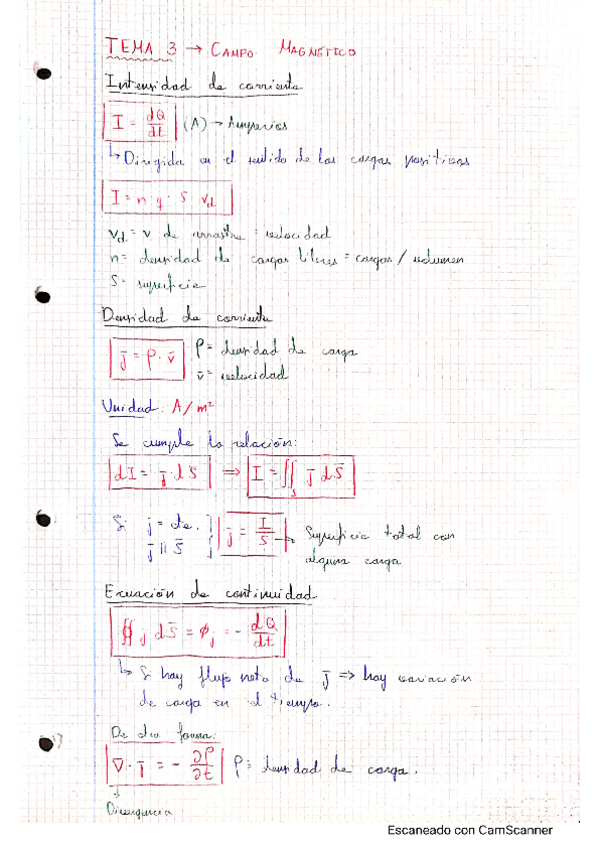 TEMA 3 → CAMPO MAGNÉTICO
Intensidad de corriente
I = dQ/dt (A) → Amperios
↳ Dirigida en el sentido de las cargas positivas
I = n · q · S · v_d
v_d = v de arrastre = velocidad
n = densidad de cargas libres = cargas / volumen
S = superficie
Densidad de corriente
j̄ = ρ · v̄ ρ = densidad de carga
v̄ = velocidad
Unidad: A/m²
Se cumple la relación:
dI = j̄ dS̄ ⇒ I = ∬_S j̄ dS̄
Si j̄ = cte. } j̄ = I/S → Superficie total con
j̄ || S̄ alguna carga
Ecuación de continuidad
∯ j dS̄ = ϕ_j = - dQ/dt
↳ Si hay flujo neto de j̄ ⇒ hay variación
de carga en el tiempo.
De otra forma:
∇ · j̄ = - ∂ρ/∂t ρ = densidad de carga.
↓
Divergencia
Escaneado con CamScanner